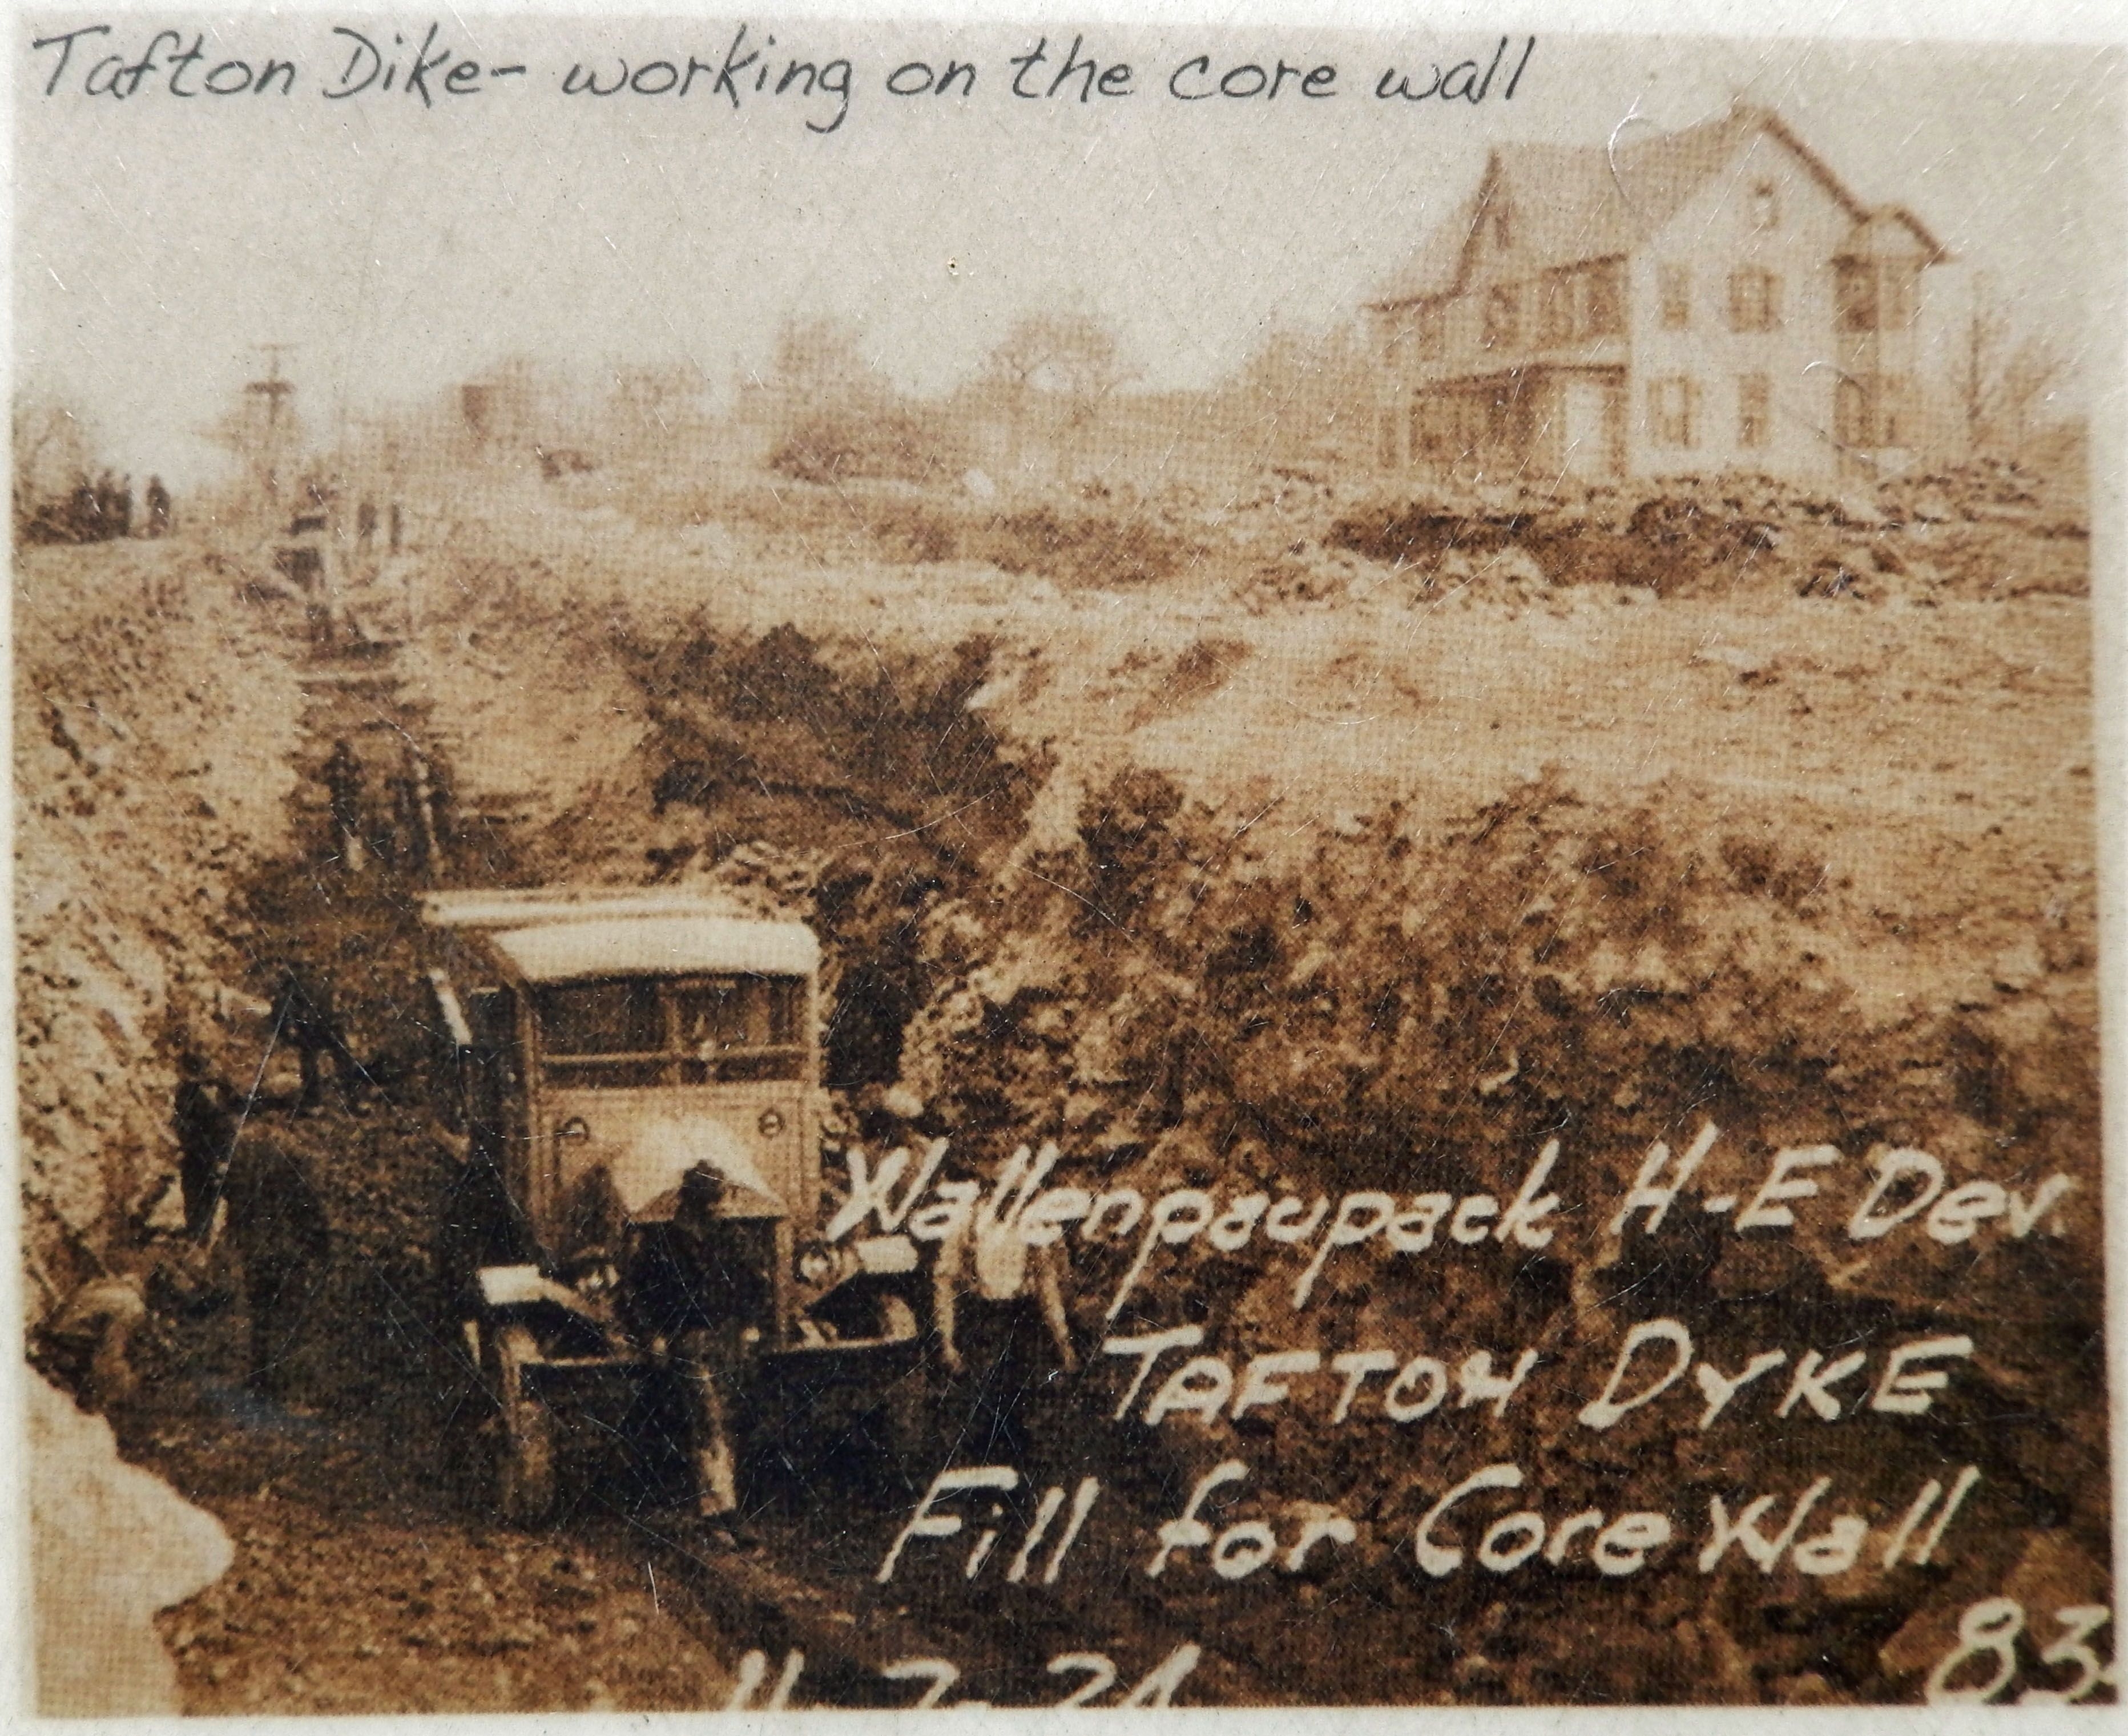 Tafton Dike - working on the core wall
Wallenpaupack H-E Dev.
TAFTON DYKE
Fill for Core Wall
83